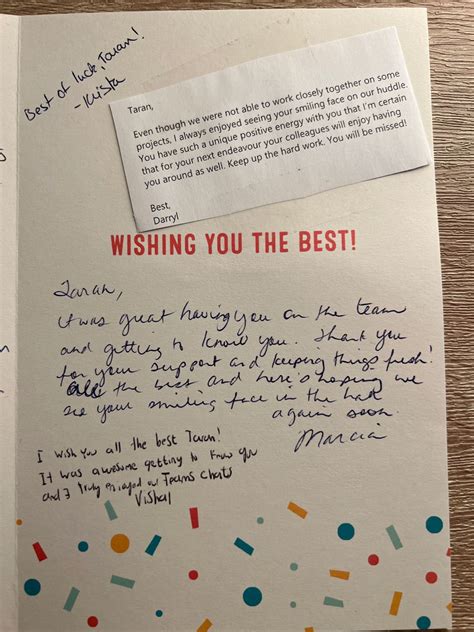 Best of luck, Taran!
- Krista
Taran,
Even though we were not able to work closely together on some
projects, I always enjoyed seeing your smiling face on our huddle.
You have such a unique positive energy with you that I'm certain
that for your next endeavour your colleagues will enjoy having
you around as well. Keep up the hard work. You will be missed!
Best,
Darryl
WISHING YOU THE BEST!
Taran,
it was great having you on the team
and getting to know you. Thank you
for your support and keeping things fresh!
All the best and here's hoping we
see your smiling face in the hall
again soon.
Marcia
I wish you all the best Taran!
It was awesome getting to know you
and I truly enjoyed our Teams chats
Vishal